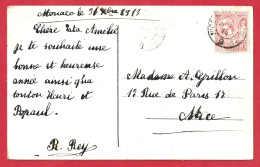 Monaco le 31 Xbre 1913
Chère Tata Amélie
je te souhaite une
bonne et heureuse
année ainsi qu'a
tonton Henri et
Popaul.
R. Rey
Madame A. Grillon
17 Rue de Paris 17
Nice